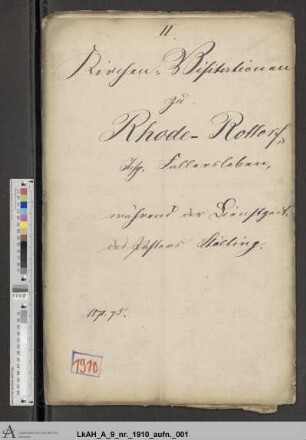 II.
Kirchen-Visitationen
zu
Rhode-Rottorf,
Insp. Fallersleben,
während der Dienstzeit
des Pastors Kölling.
1910
LkAH_A_9_nr._1910_aufn._001